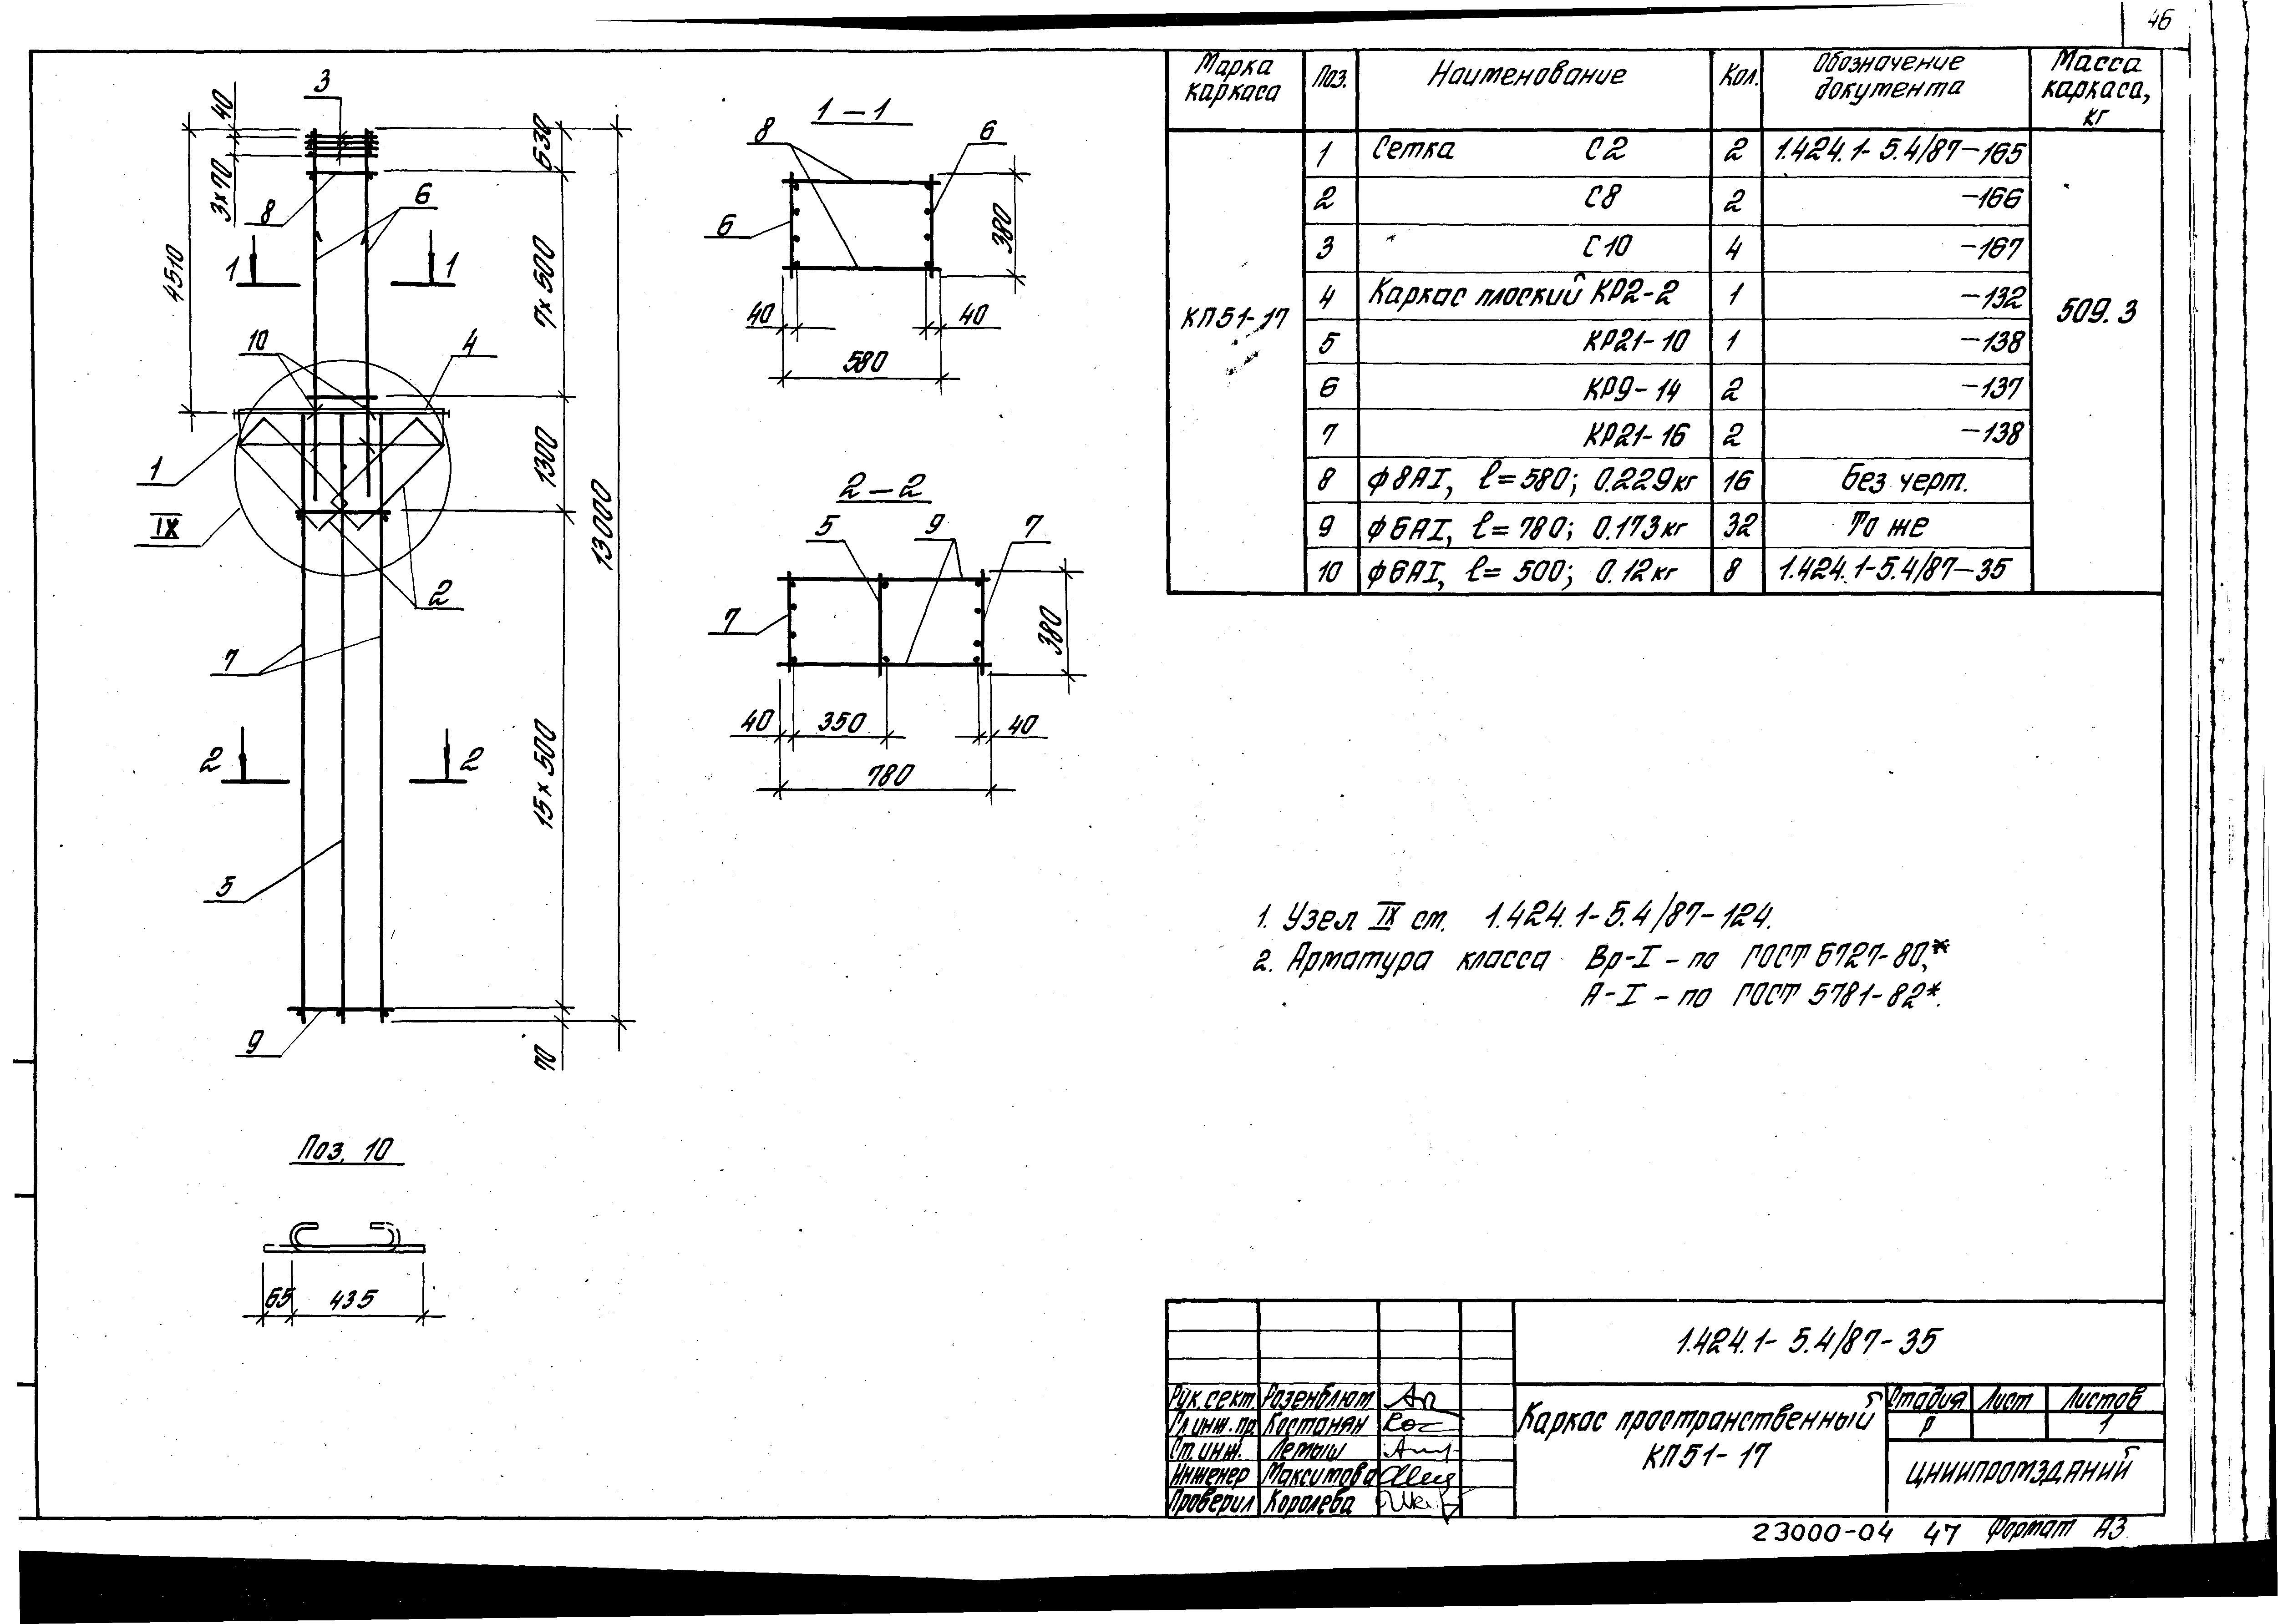 46
3
40
3×70
4510
8
6
1 1
10
4
1
IX
2
7
2 2
5
9
630
7×500
1300
15×500
70
13000
1 – 1
8
6
6
380
40
40
580
2 – 2
5
9
7
7
380
40
350
40
780
Поз. 10
65
435
Марка каркаса | Поз. | Наименование | Кол. | Обозначение документа | Масса каркаса, кг
КП51-17
509.3
1 Сетка С2 2 1.424.1-5.4/87-165
2 С8 2 -166
3 С10 4 -167
4 Каркас плоский КР2-2 1 -132
5 КР21-10 1 -138
6 КР9-14 2 -137
7 КР21-16 2 -138
8 ϕ8АI, ℓ=580; 0.229кг 16 Без черт.
9 ϕ6АI, ℓ=780; 0.173кг 32 То же
10 ϕ6АI, ℓ=500; 0.12кг 8 1.424.1-5.4/87-35
1. Узел IX см. 1.424.1-5.4/87-124.
2. Арматура класса Вр-I – по ГОСТ 6727-80,*
А-I – по ГОСТ 5781-82*.
1.424.1-5.4/87-35
Рук.сект. Розенблюм
Гл.инж.пр. Костанян
Ст.инж. Летыш
Инженер Максимова
Проверил Королева
Каркас пространственный
КП51-17
Стадия Лист Листов
Р 1
ЦНИИПРОМЗДАНИЙ
23000-04 47 Формат А3